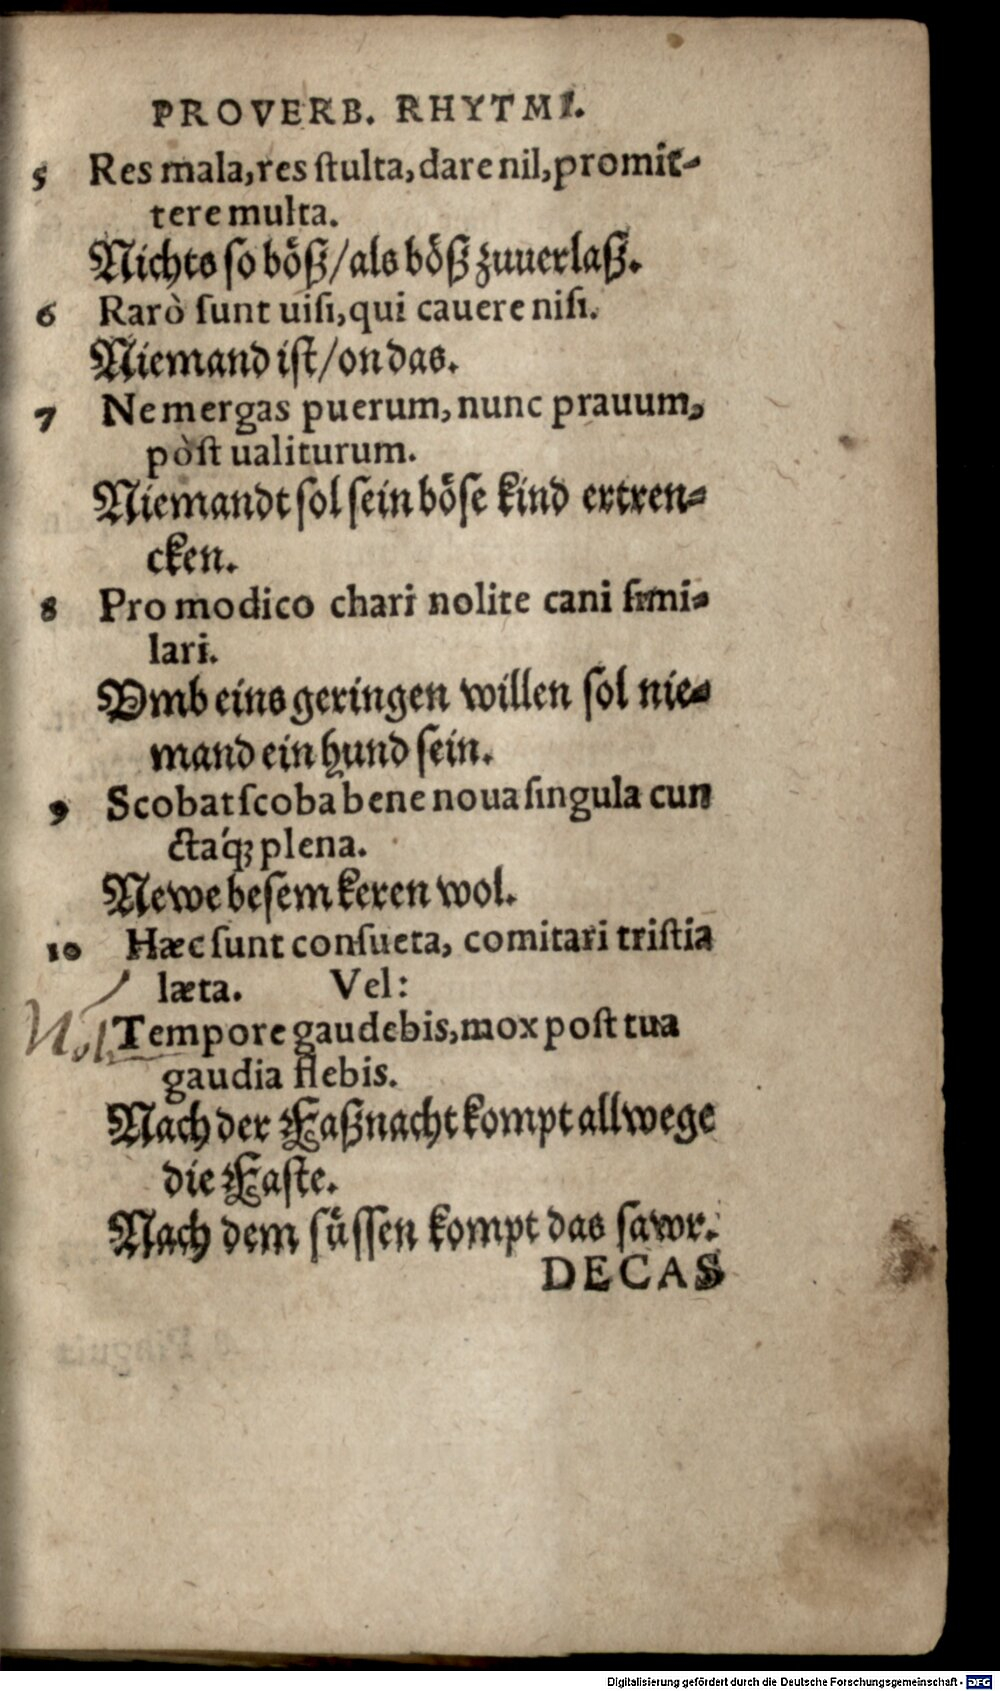 PROVERB. RHYTMI.
5 Res mala, res ſtulta, dare nil, promit-
tere multa.
Nichts ſo böß/als böß zuuerlaß.
6 Rarò ſunt uiſi, qui cauere niſi.
Niemand iſt/on das.
7 Ne mergas puerum, nunc prauum,
pòſt ualiturum.
Niemandt ſol ſein böſe kind ertren-
cken.
8 Pro modico chari nolite cani ſimi-
lari.
Vmb eins geringen willen ſol nie-
mand ein hund ſein.
9 Scobat ſcoba bene noua ſingula cun
ctáq; plena.
Newe beſem keren wol.
10 Hæc ſunt conſueta, comitari triſtia
læta. Vel:
Tempore gaudebis, mox poſt tua
gaudia flebis.
Nach der Faßnacht kompt allwege
die Faſte.
Nach dem ſüſſen kompt das ſawr.
DECAS
Digitalisierung gefördert durch die Deutsche Forschungsgemeinschaft - DFG